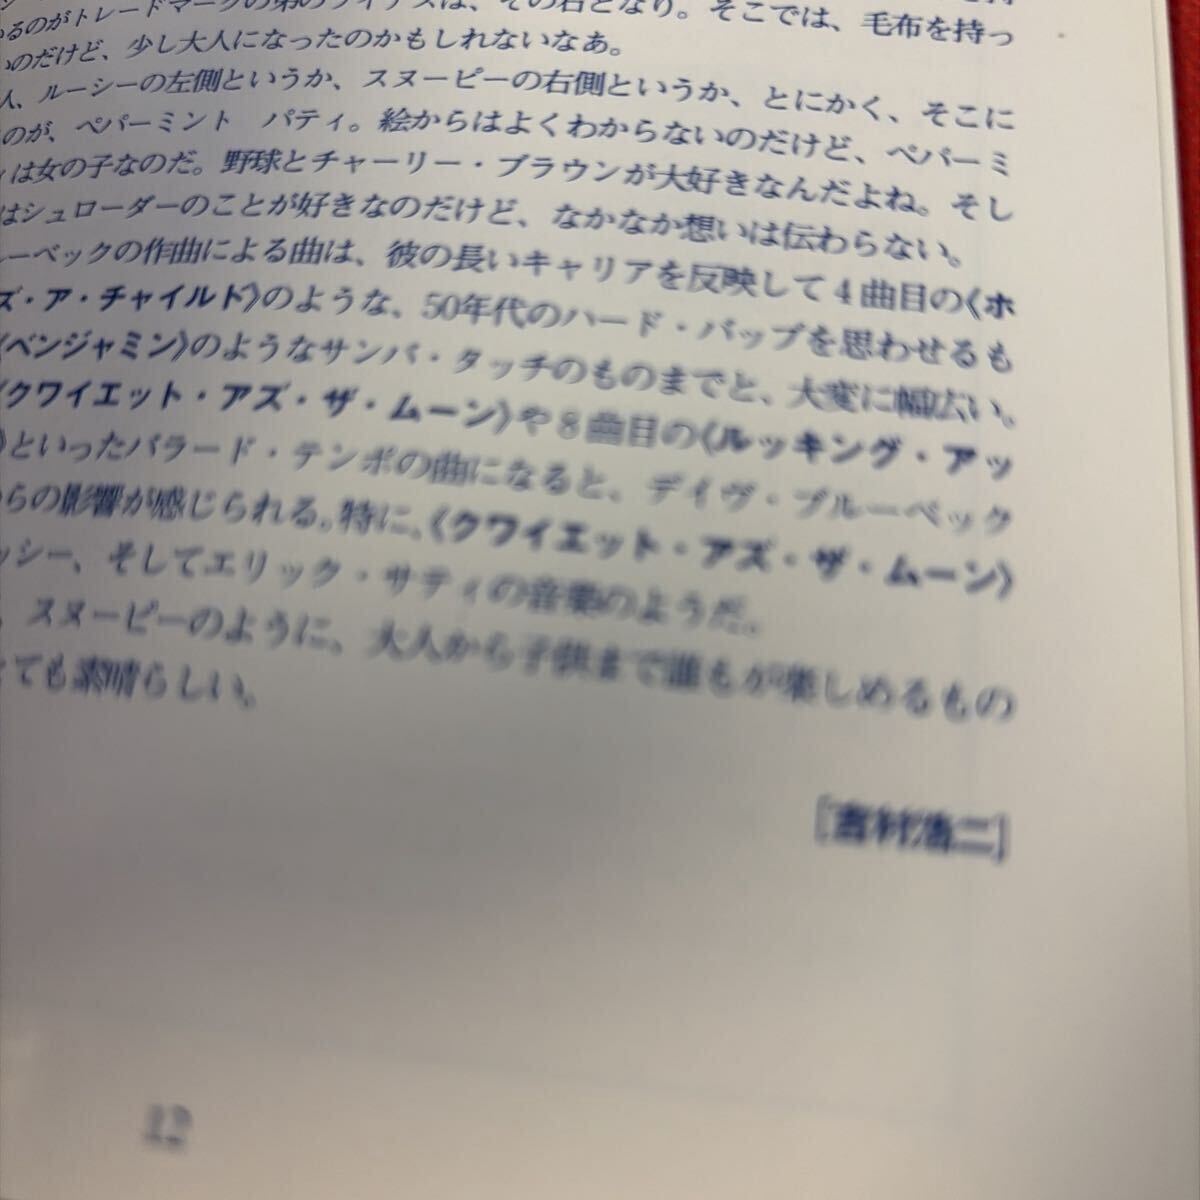 るのがトレードマークの弟のライナスは、その右となり。そこでは、毛布を持っ
いのだけど、少し大人になったのかもしれないなあ。
人、ルーシーの左側というか、スヌーピーの右側というか、とにかく、そこに
のが、ペパーミント　パティ。絵からはよくわからないのだけど、ペパーミ
は女の子なのだ。野球とチャーリー・ブラウンが大好きなんだよね。そし
はシュローダーのことが好きなのだけど、なかなか想いは伝わらない。
ルーベックの作曲による曲は、彼の長いキャリアを反映して4曲目の〈ホ
ズ・ア・チャイルド〉のような、50年代のハード・バップを思わせるも
〈ベンジャミン〉のようなサンバ・タッチのものまでと、大変に幅広い。
〈クワイエット・アズ・ザ・ムーン〉や8曲目の〈ルッキング・アッ
〉といったバラード・テンポの曲になると、デイヴ・ブルーベック
らの影響が感じられる。特に、〈クワイエット・アズ・ザ・ムーン〉
ッシー、そしてエリック・サティの音楽のようだ。
、スヌーピーのように、大人から子供まで誰もが楽しめるもの
とても素晴らしい。
［吉村浩二］
12